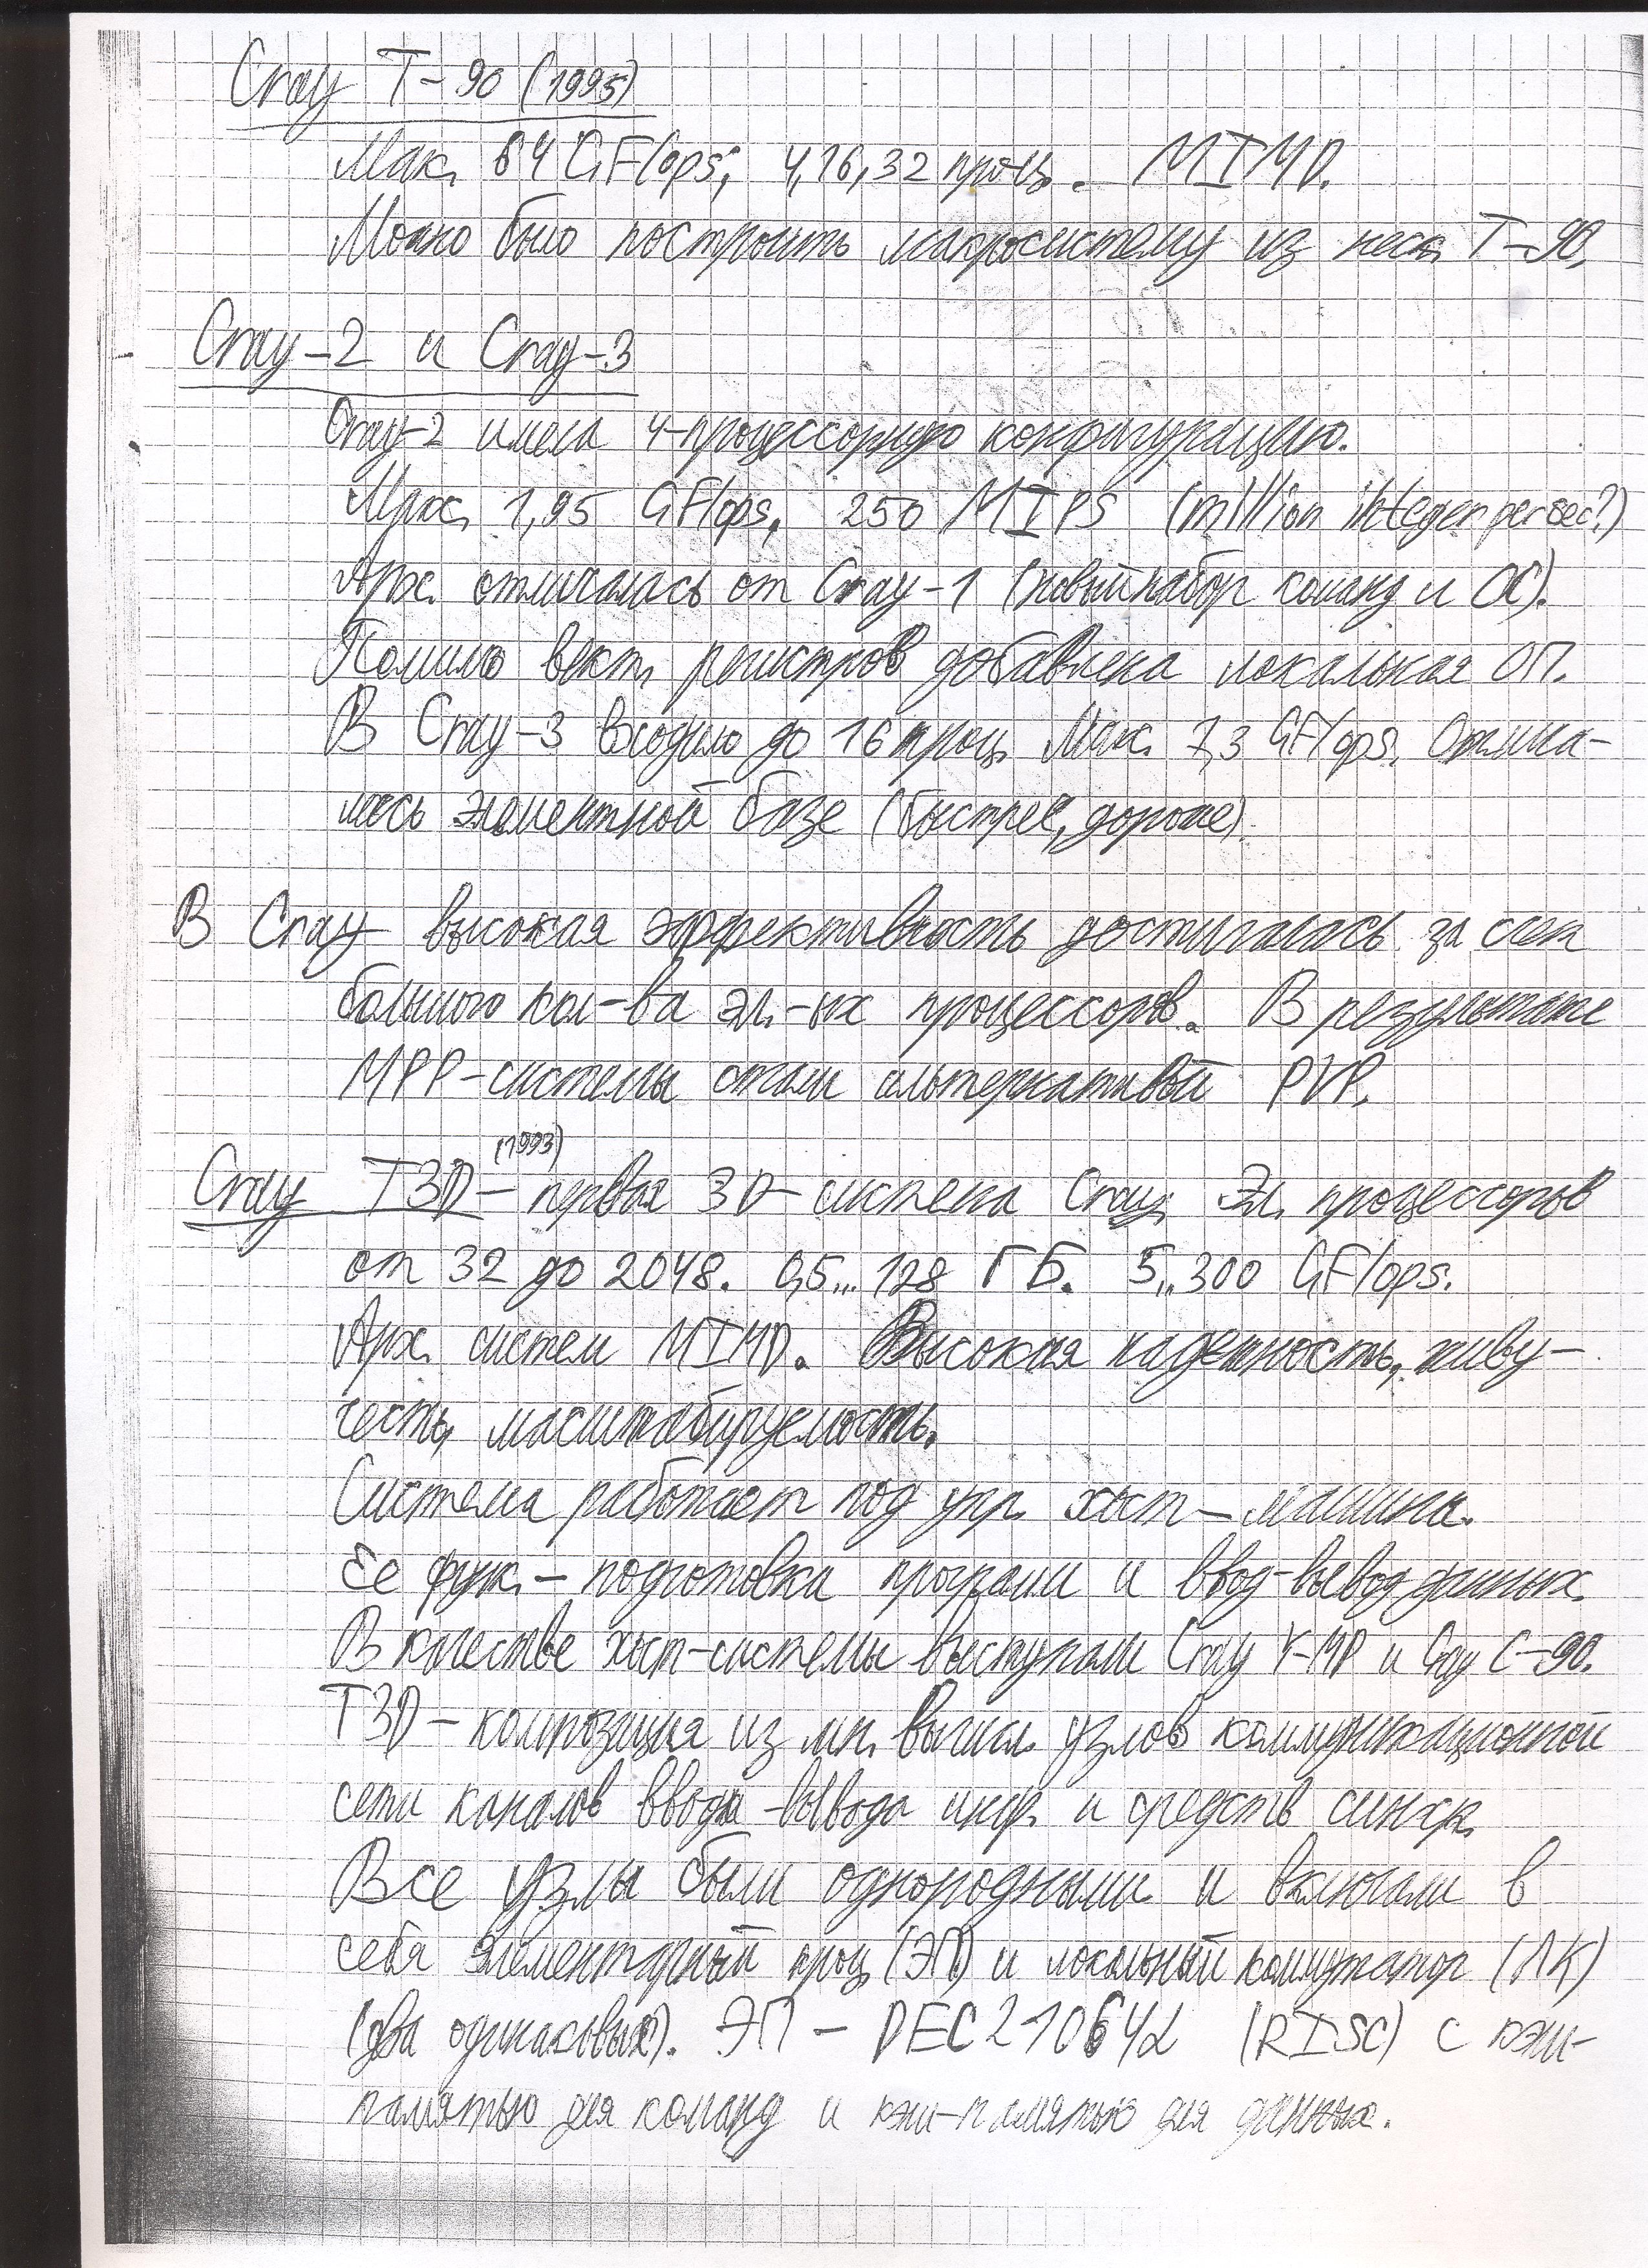 Cray T-90 (1995)
Мак. 64 GFlops; 4, 16, 32 проц. MIMD.
Можно было построить макросистему из неск. T-90.
Cray-2 и Cray-3
Cray-2 имела 4-процессорную конфигурацию.
Макс. 1,95 GFlops, 250 MIPS (million integer per sec?)
Арх. отличалась от Cray-1 (новый набор команд и ОС).
Помимо вект. регистров добавлена локальная ОП.
В Cray-3 входило до 16 проц. Мак. 7,3 GFlops. Отлича-
лась элементной базе (быстрее, дороже).
В Cray высокая эффективность достигалась за счет
большого кол-ва эл.-ых процессоров. В результате
MPP-системы стали альтернативой PVP.
(1993)
Cray T3D - первая 3D-система Cray. Эл. процессоров
от 32 до 2048. 0,5...128 ГБ. 5..300 GFlops.
Арх. систем MIMD. Высокая надежность, живу-
честь, масштабируемость.
Система работает под упр. хост-машина.
Ее функ. - подготовка програми и ввод-вывод данных.
В качестве хост-системы выступали Cray Y-MP и Cray C-90.
T3D - композиция из мн. вычисл. узлов коммуникационной
сети каналов ввода-вывода инф. и средств синхр.
Все узлы были однородными и включали в
себя элементарный проц. (ЭП) и локальный коммутатор (ЛК)
(два одинаковых). ЭП - DEC 21064α (RISC) с кэш-
памятью для команд и кэш-памятью для данных.